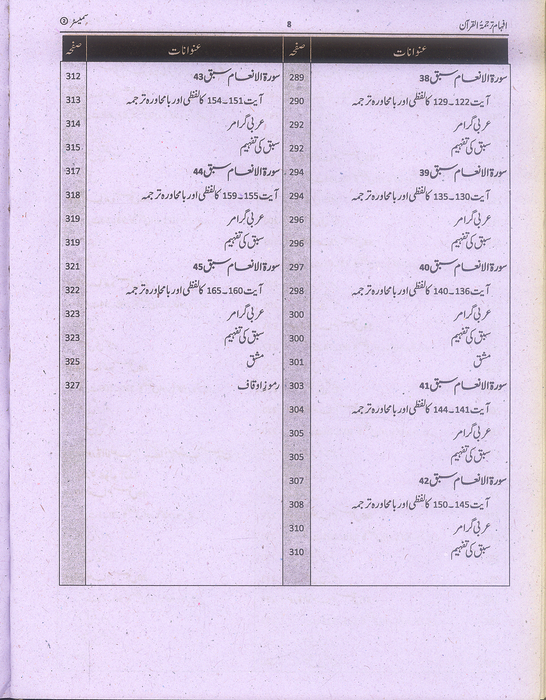 افہام ترجمۃ القرآن 8 سمیسٹر ②
عنوانات صفحہ
سورۃ الانعام سبق 38 289
آیت 122۔129 کا لفظی اور بامحاورہ ترجمہ 290
عربی گرامر 292
سبق کی تفہیم 292
سورۃ الانعام سبق 39 294
آیت 130۔135 کا لفظی اور بامحاورہ ترجمہ 294
عربی گرامر 296
سبق کی تفہیم 296
سورۃ الانعام سبق 40 297
آیت 136۔140 کا لفظی اور بامحاورہ ترجمہ 298
عربی گرامر 300
سبق کی تفہیم 300
مشق 301
سورۃ الانعام سبق 41 303
آیت 141۔144 کا لفظی اور بامحاورہ ترجمہ 304
عربی گرامر 305
سبق کی تفہیم 305
سورۃ الانعام سبق 42 307
آیت 145۔150 کا لفظی اور بامحاورہ ترجمہ 308
عربی گرامر 310
سبق کی تفہیم 310
عنوانات صفحہ
سورۃ الانعام سبق 43 312
آیت 151۔154 کا لفظی اور بامحاورہ ترجمہ 313
عربی گرامر 314
سبق کی تفہیم 315
سورۃ الانعام سبق 44 317
آیت 155۔159 کا لفظی اور بامحاورہ ترجمہ 318
عربی گرامر 319
سبق کی تفہیم 319
سورۃ الانعام سبق 45 321
آیت 160۔165 کا لفظی اور بامحاورہ ترجمہ 322
عربی گرامر 323
سبق کی تفہیم 323
مشق 325
رموز اوقاف 327